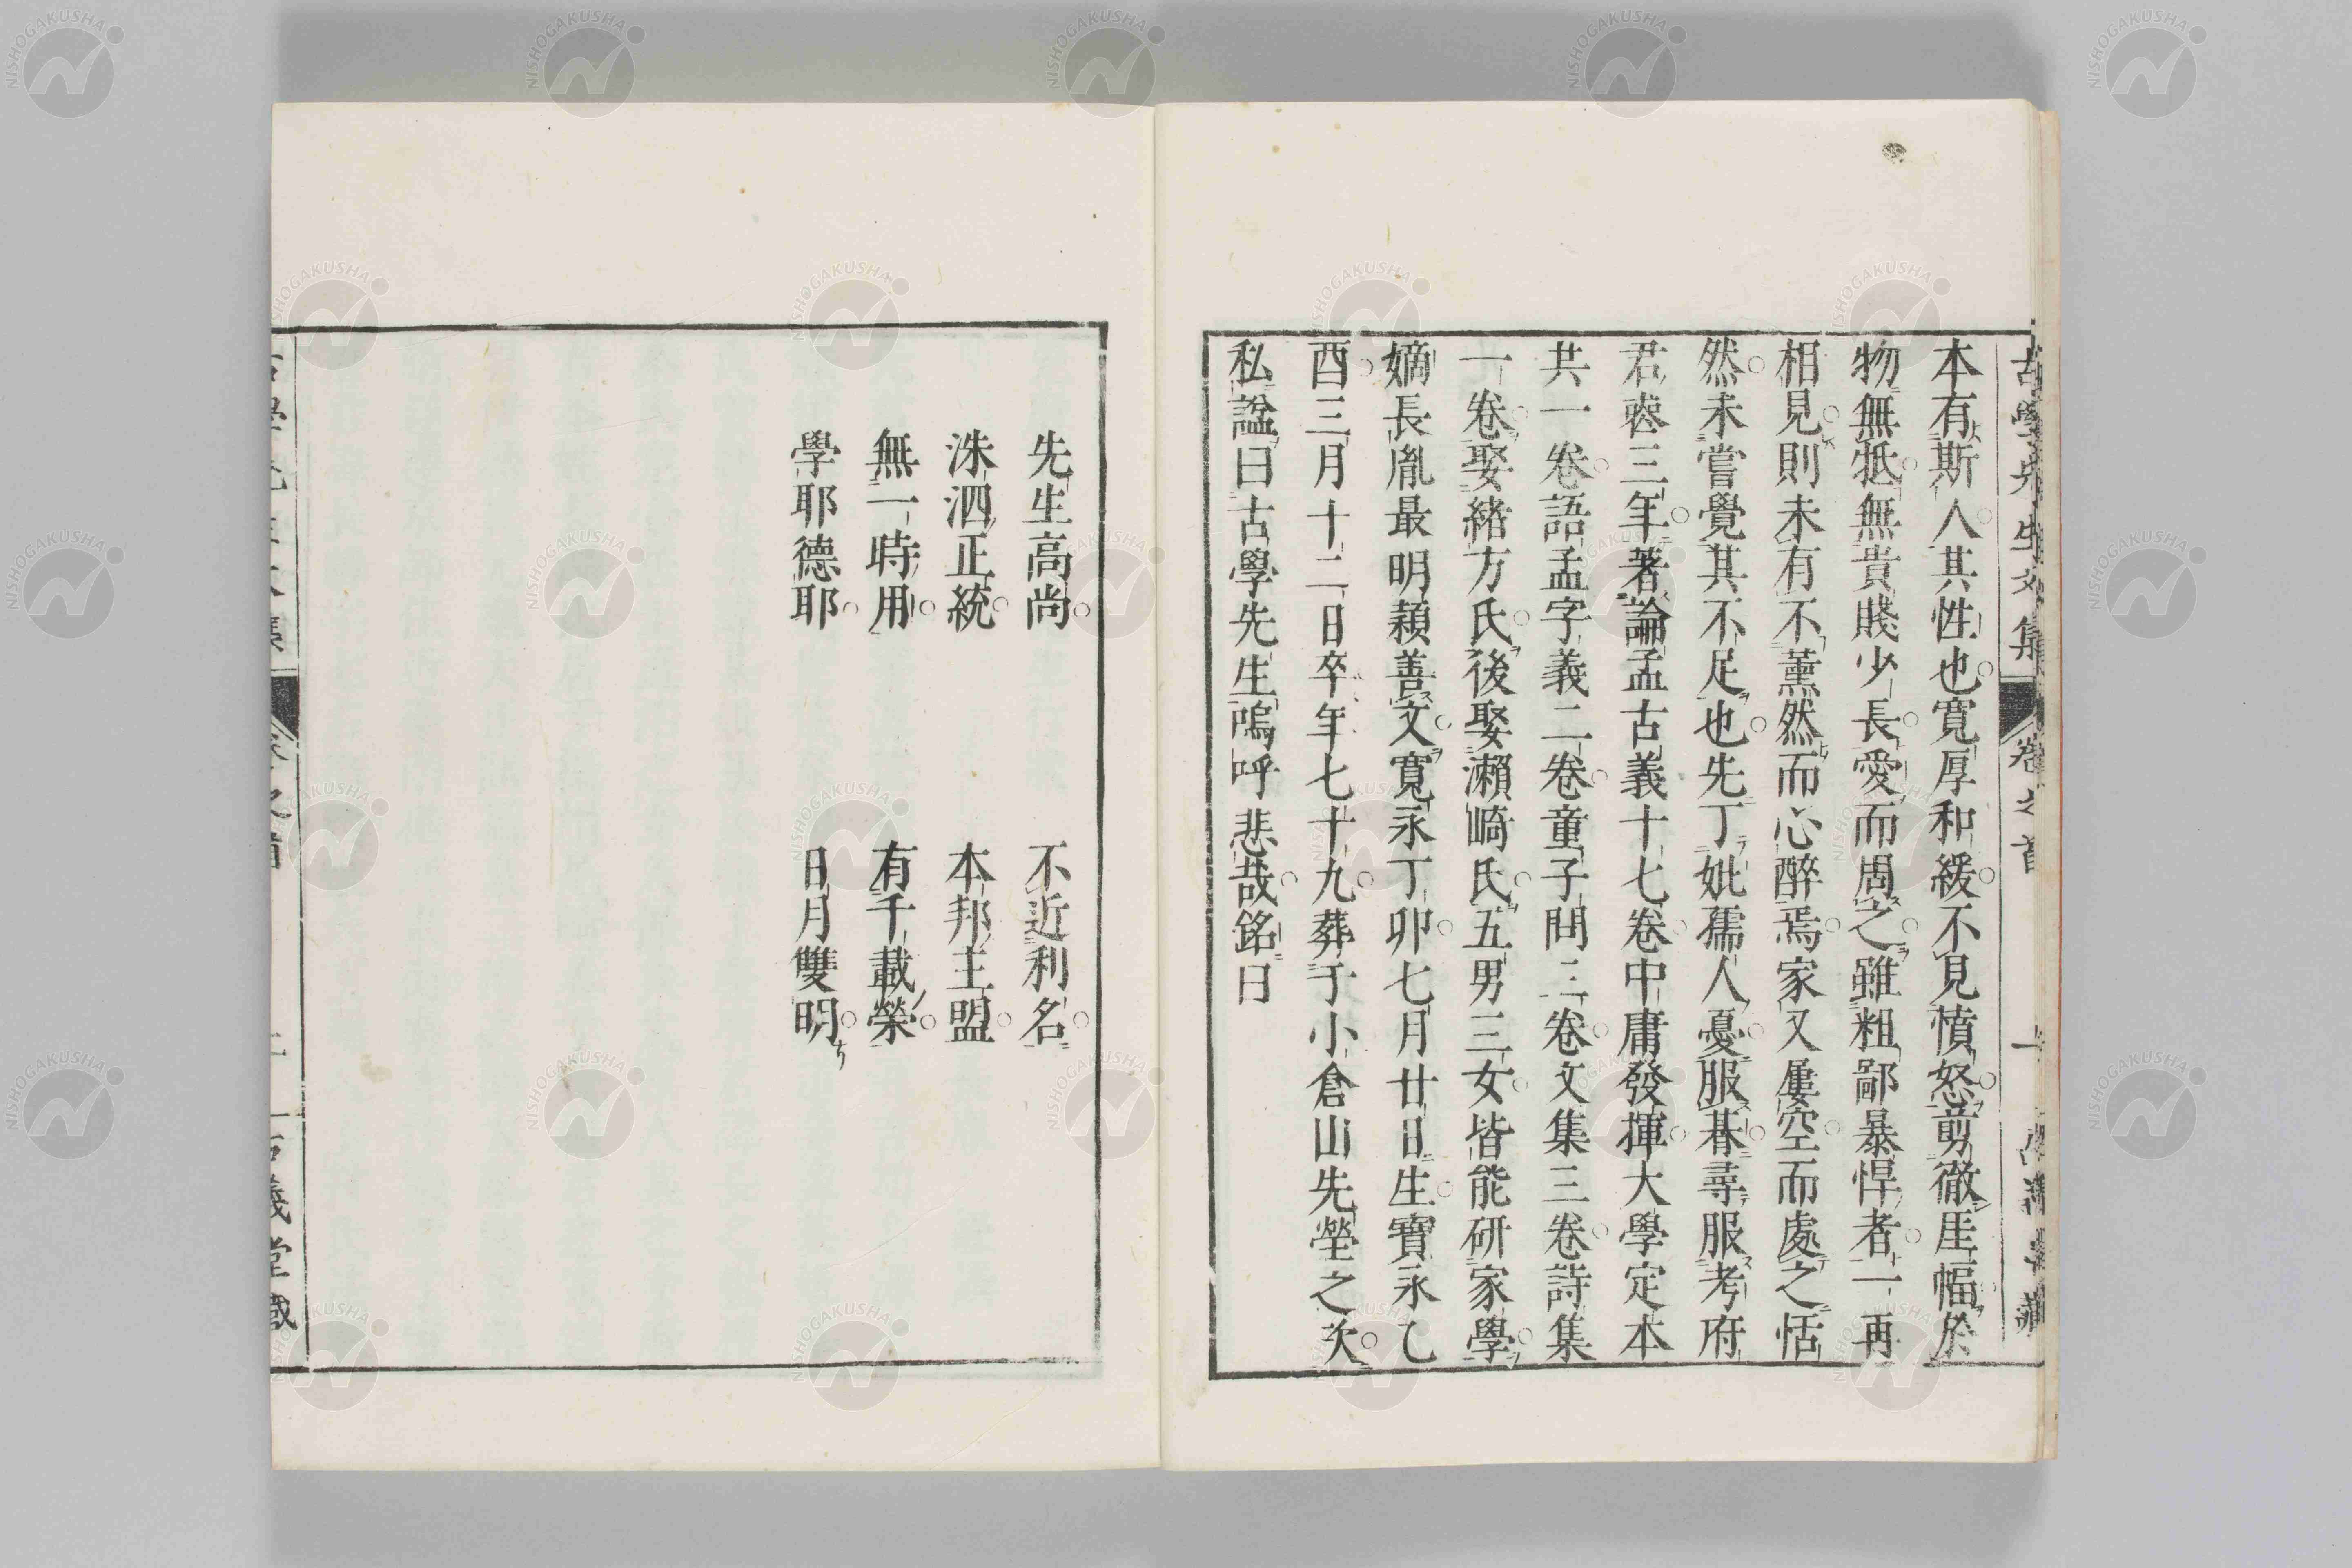 古學先生文集 卷之首
本有斯人其性也寬厚和緩不見憤怒剪徹厓幅於
物無牴無貴賤少長愛而周之雖粗鄙暴悍者一再
相見則未有不薫然而心醉焉家又屢空而處之恬
然未嘗覺其不足也先丁妣孺人憂服朞尋服考府
君喪三年著論孟古義十七卷中庸發揮大學定本
共一卷語孟字義二卷童子問三卷文集三卷詩集
一卷娶緒方氏後娶瀬崎氏五男三女皆能研家學
嫡長胤最明穎善文寬永丁卯七月廿日生寶永乙
酉三月十二日卒年七十九葬于小倉山先塋之次
私諡曰古學先生嗚呼悲哉銘曰
先生高尚 不近利名
洙泗正統 本邦主盟
無一時用 有千載榮
學耶德耶 日月雙明
NISHOGAKUSHA